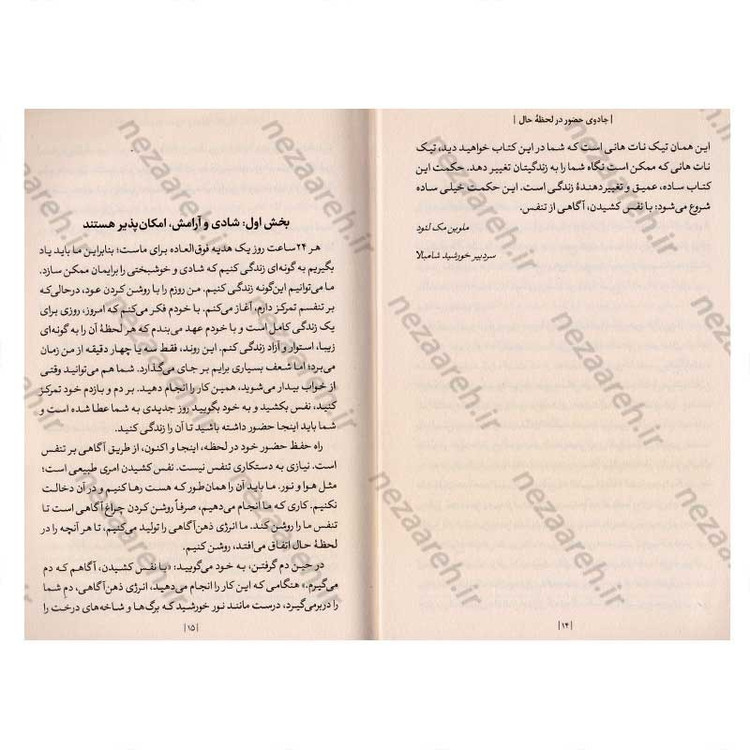 | جادوی حضور در لحظهٔ حال |
این همان تیک نات هانی است که شما در این کتاب خواهید دید، تیک
نات هانی که ممکن است نگاه شما را به زندگیتان تغییر دهد. حکمت این
کتاب ساده، عمیق و تغییردهندهٔ زندگی است. این حکمت خیلی ساده
شروع می‌شود: با نفس کشیدن، آگاهی از تنفس.
ملوین مک لئود
سردبیر خورشید شامبالا
| ۱۴ |
بخش اول: شادی و آرامش، امکان‌پذیر هستند
هر ۲۴ ساعت روز یک هدیه فوق‌العاده برای ماست؛ بنابراین ما باید یاد
بگیریم به گونه‌ای زندگی کنیم که شادی و خوشبختی را برایمان ممکن سازد.
ما می‌توانیم این‌گونه زندگی کنیم. من روزم را با روشن کردن عود، درحالی‌که
بر تنفسم تمرکز دارم، آغاز می‌کنم. با خودم فکر می‌کنم که امروز، روزی برای
یک زندگی کامل است و با خودم عهد می‌بندم که هر لحظهٔ آن را به گونه‌ای
زیبا، استوار و آزاد زندگی کنم. این روند، فقط سه یا چهار دقیقه از من زمان
می‌برد؛ اما شعف بسیاری برایم بر جای می‌گذارد. شما هم می‌توانید وقتی
از خواب بیدار می‌شوید، همین کار را انجام دهید. بر دم و بازدم خود تمرکز
کنید، نفس بکشید و به خود بگویید روز جدیدی به شما عطا شده است و
شما باید اینجا حضور داشته باشید تا آن را زندگی کنید.
راه حفظ حضور خود در لحظه، اینجا و اکنون، از طریق آگاهی بر تنفس
است. نیازی به دستکاری تنفس نیست. نفس کشیدن امری طبیعی است؛
مثل هوا و نور. ما باید آن را همان‌طور که هست رها کنیم و در آن دخالت
نکنیم. کاری که ما انجام می‌دهیم، صرفاً روشن کردن چراغ آگاهی است تا
تنفس ما را روشن کند. ما انرژی ذهن‌آگاهی را تولید می‌کنیم، تا هر آنچه را در
لحظهٔ حال اتفاق می‌افتد، روشن کنیم.
در حین دم گرفتن، به خود می‌گویید: «با نفس کشیدن، آگاهم که دم
می‌گیرم.» هنگامی که این کار را انجام می‌دهید، انرژی ذهن‌آگاهی، دم شما
را دربرمی‌گیرد، درست مانند نور خورشید که برگ‌ها و شاخه‌های درخت را
| ۱۵ |
nezaareh.ir